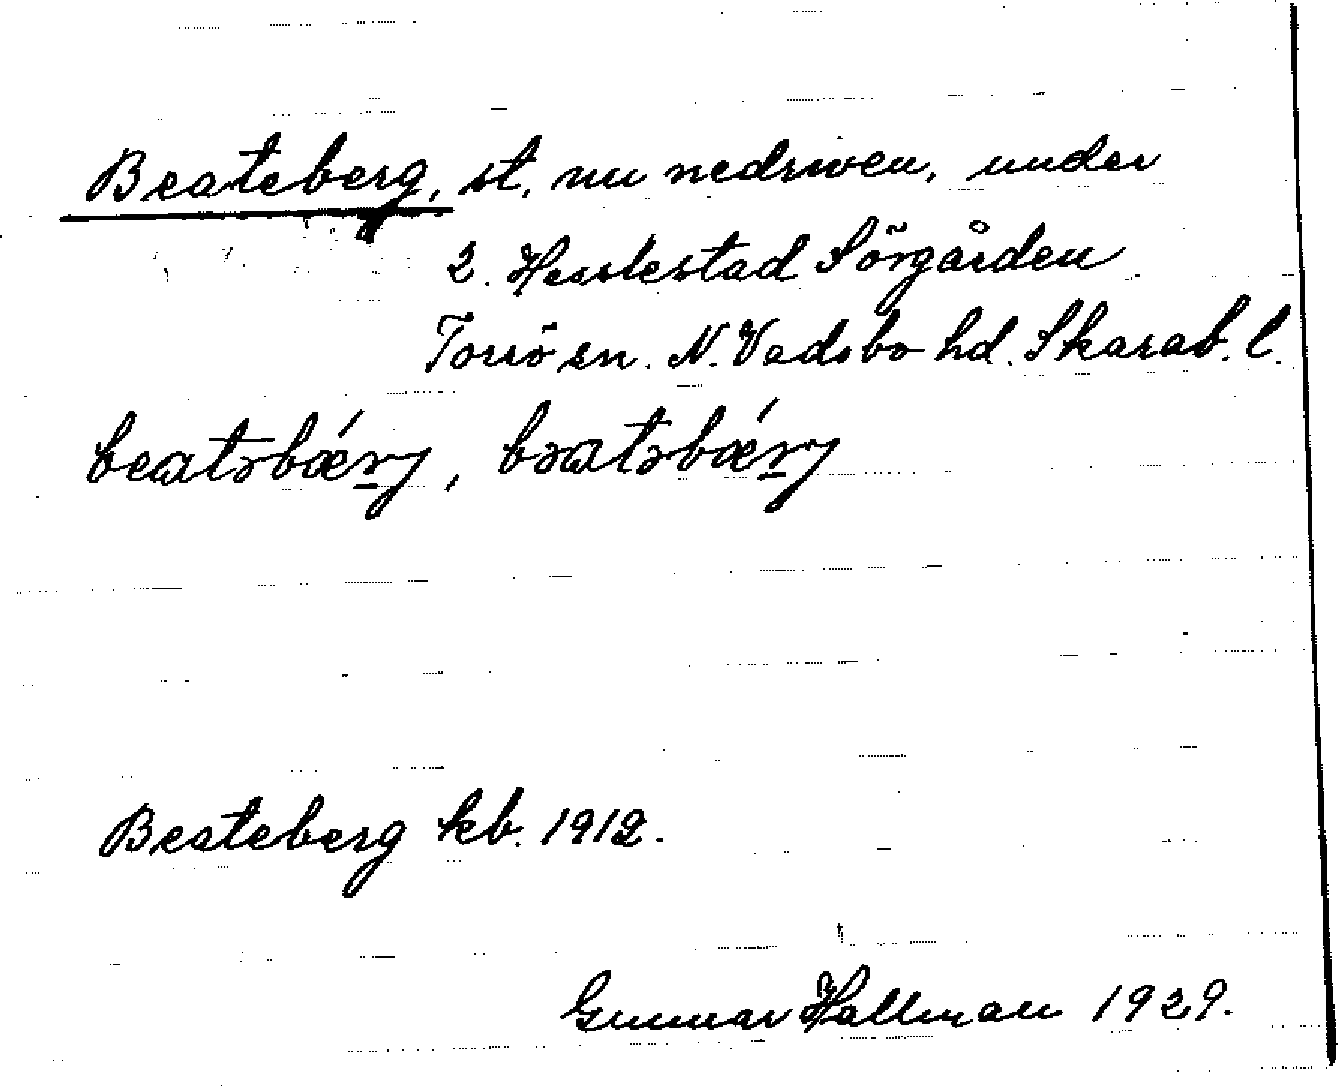 Beateberg, st, nu nedriven, under
2. Hesslestad Sörgården
Torsö sn. N. Vadsbo hd. Skarab. l.
beatəbǽrj, bəatəbǽrj
Beateberg kb. 1912.
Gunnar Hallman 1929.